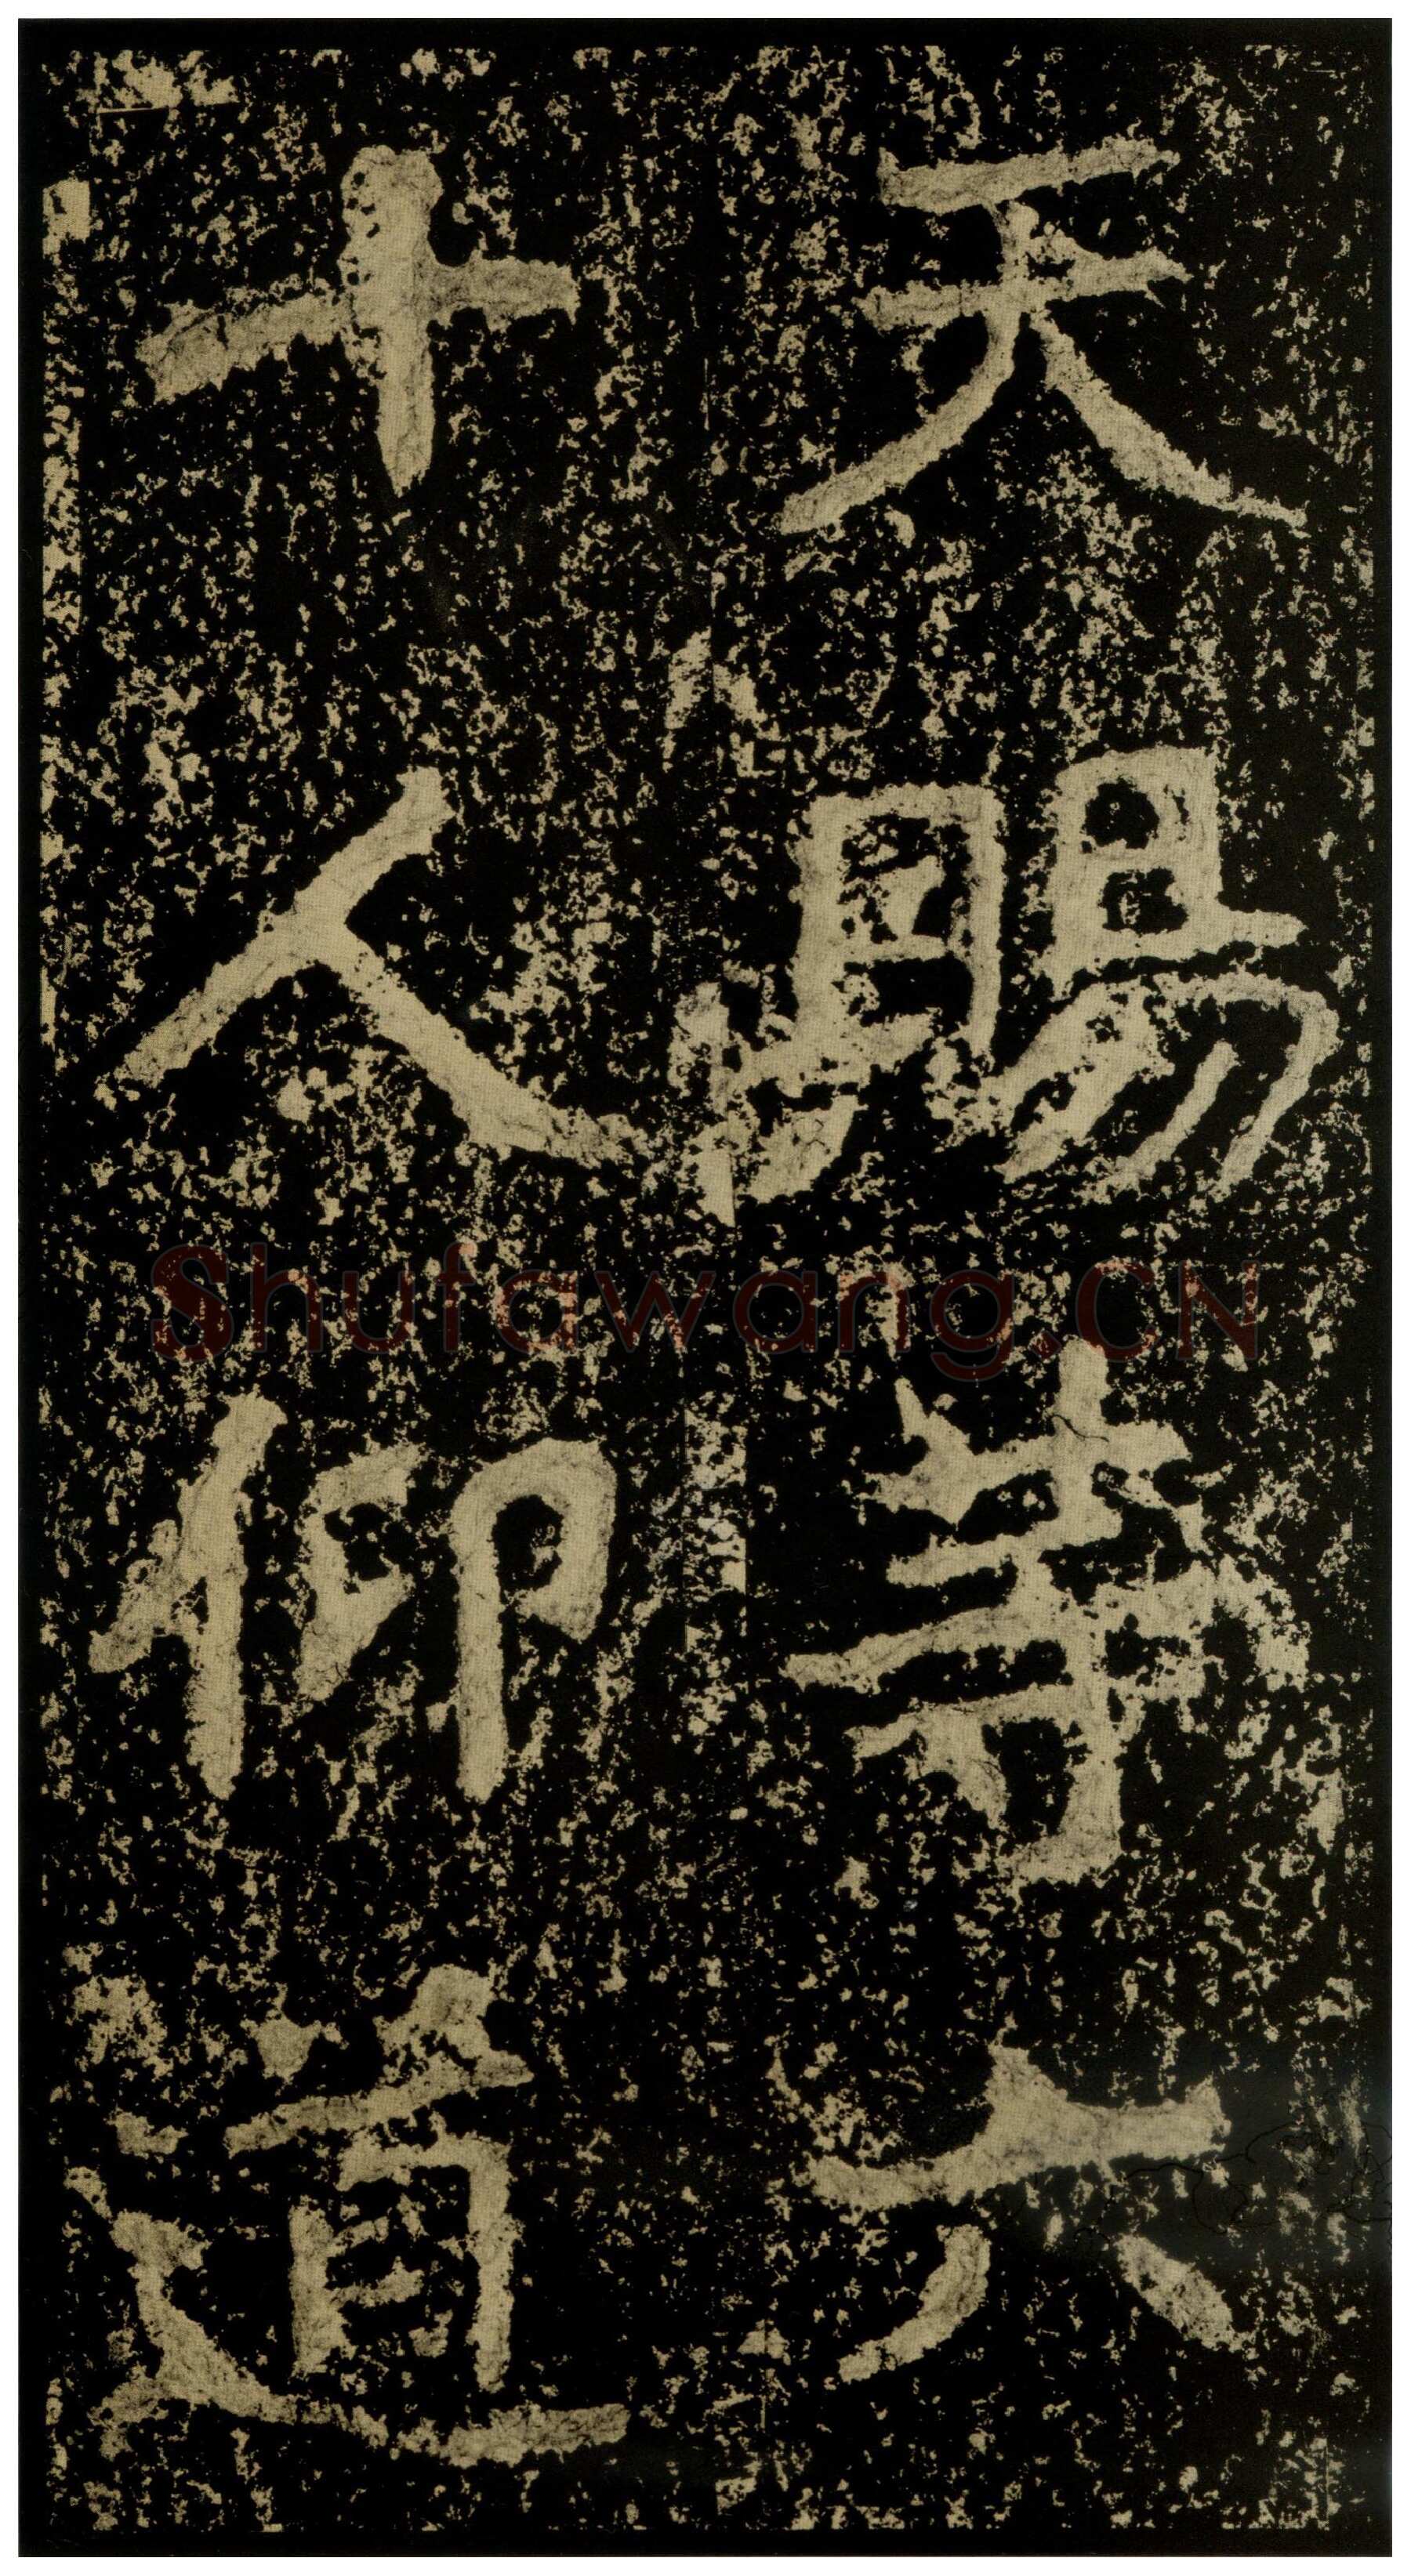 天賜壽六
十人仰道
Shufawang.CN